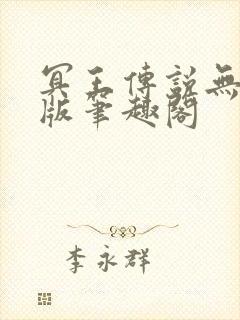 冥王傳說無
版筆趣閣
李永群